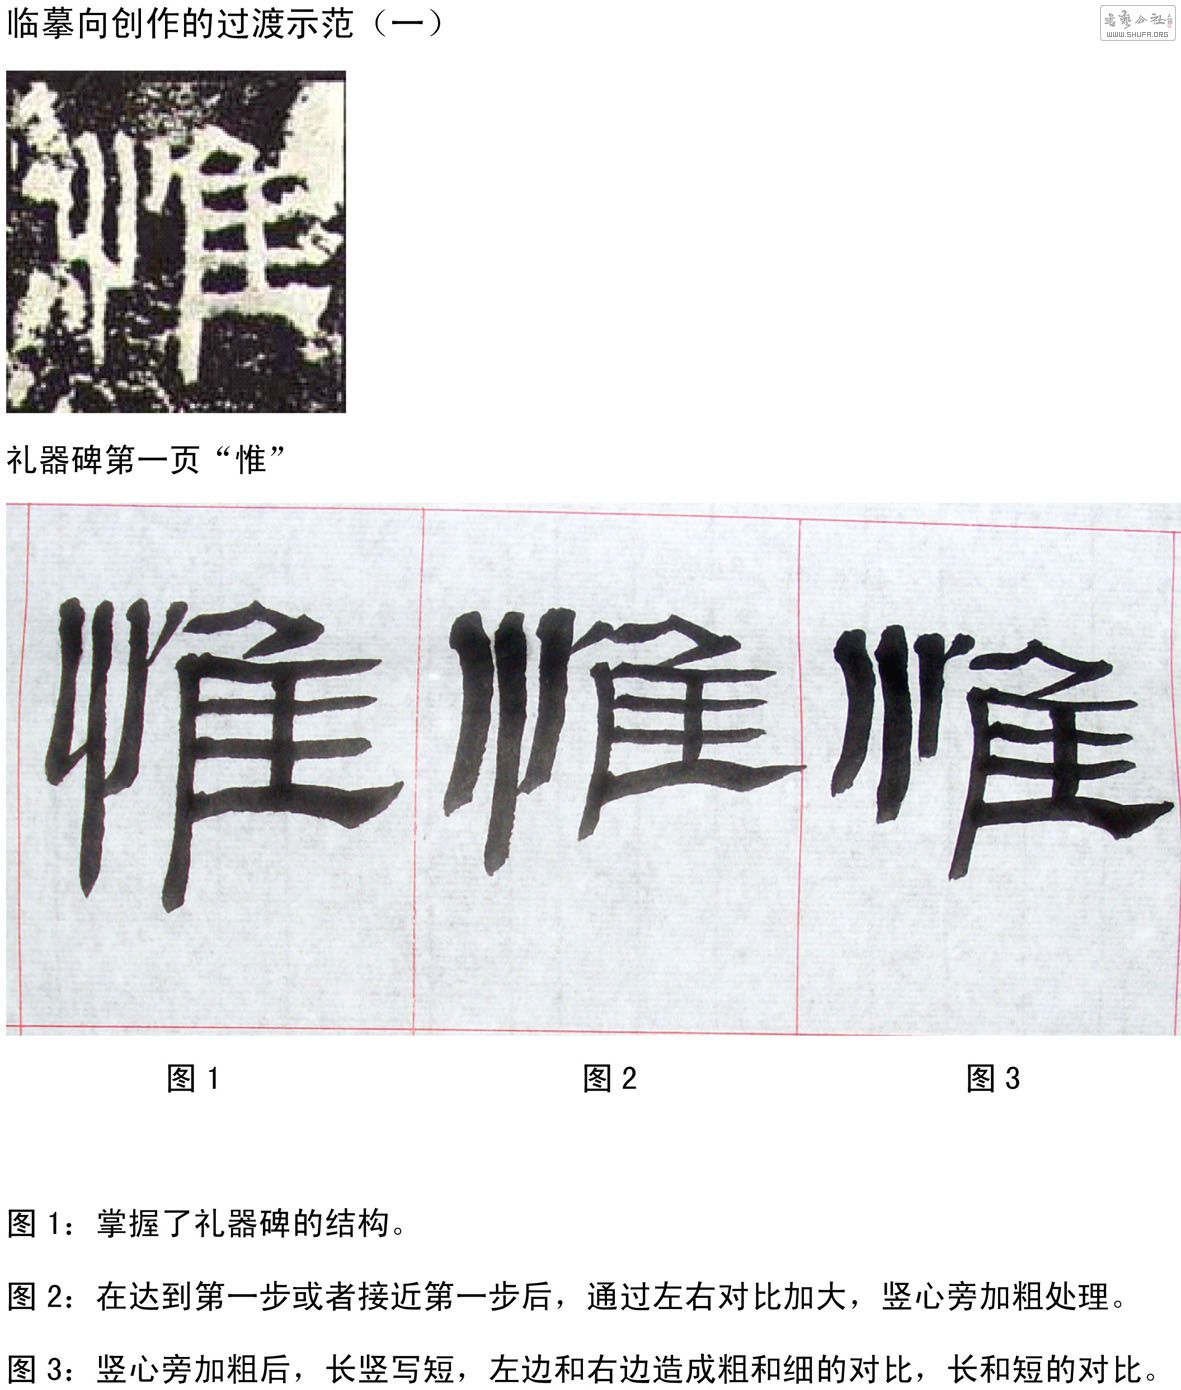 临摹向创作的过渡示范（一）
书艺公社
WWW.SHUFA.ORG
惟
礼器碑第一页“惟”
惟 惟 惟
图 1 图 2 图 3
图 1：掌握了礼器碑的结构。
图 2：在达到第一步或者接近第一步后，通过左右对比加大，竖心旁加粗处理。
图 3：竖心旁加粗后，长竖写短，左边和右边造成粗和细的对比，长和短的对比。